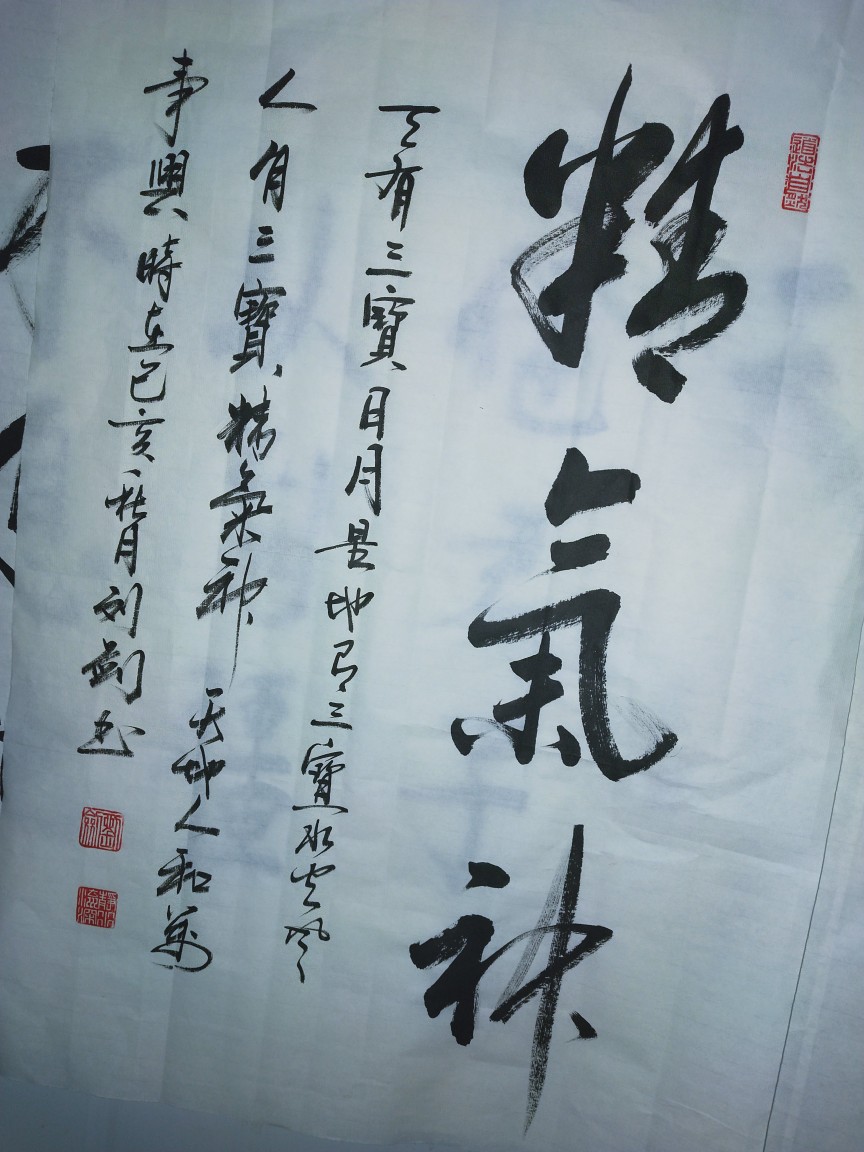 精氣神
天有三寶日月星地有三寶水火風
人有三寶精氣神天地人和萬
事興時在己亥秋月刘剑书